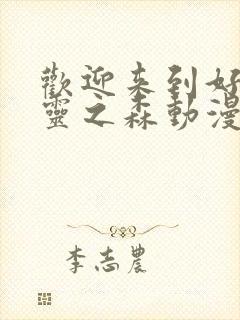 歡迎来到好
靈之森動漫
李志農